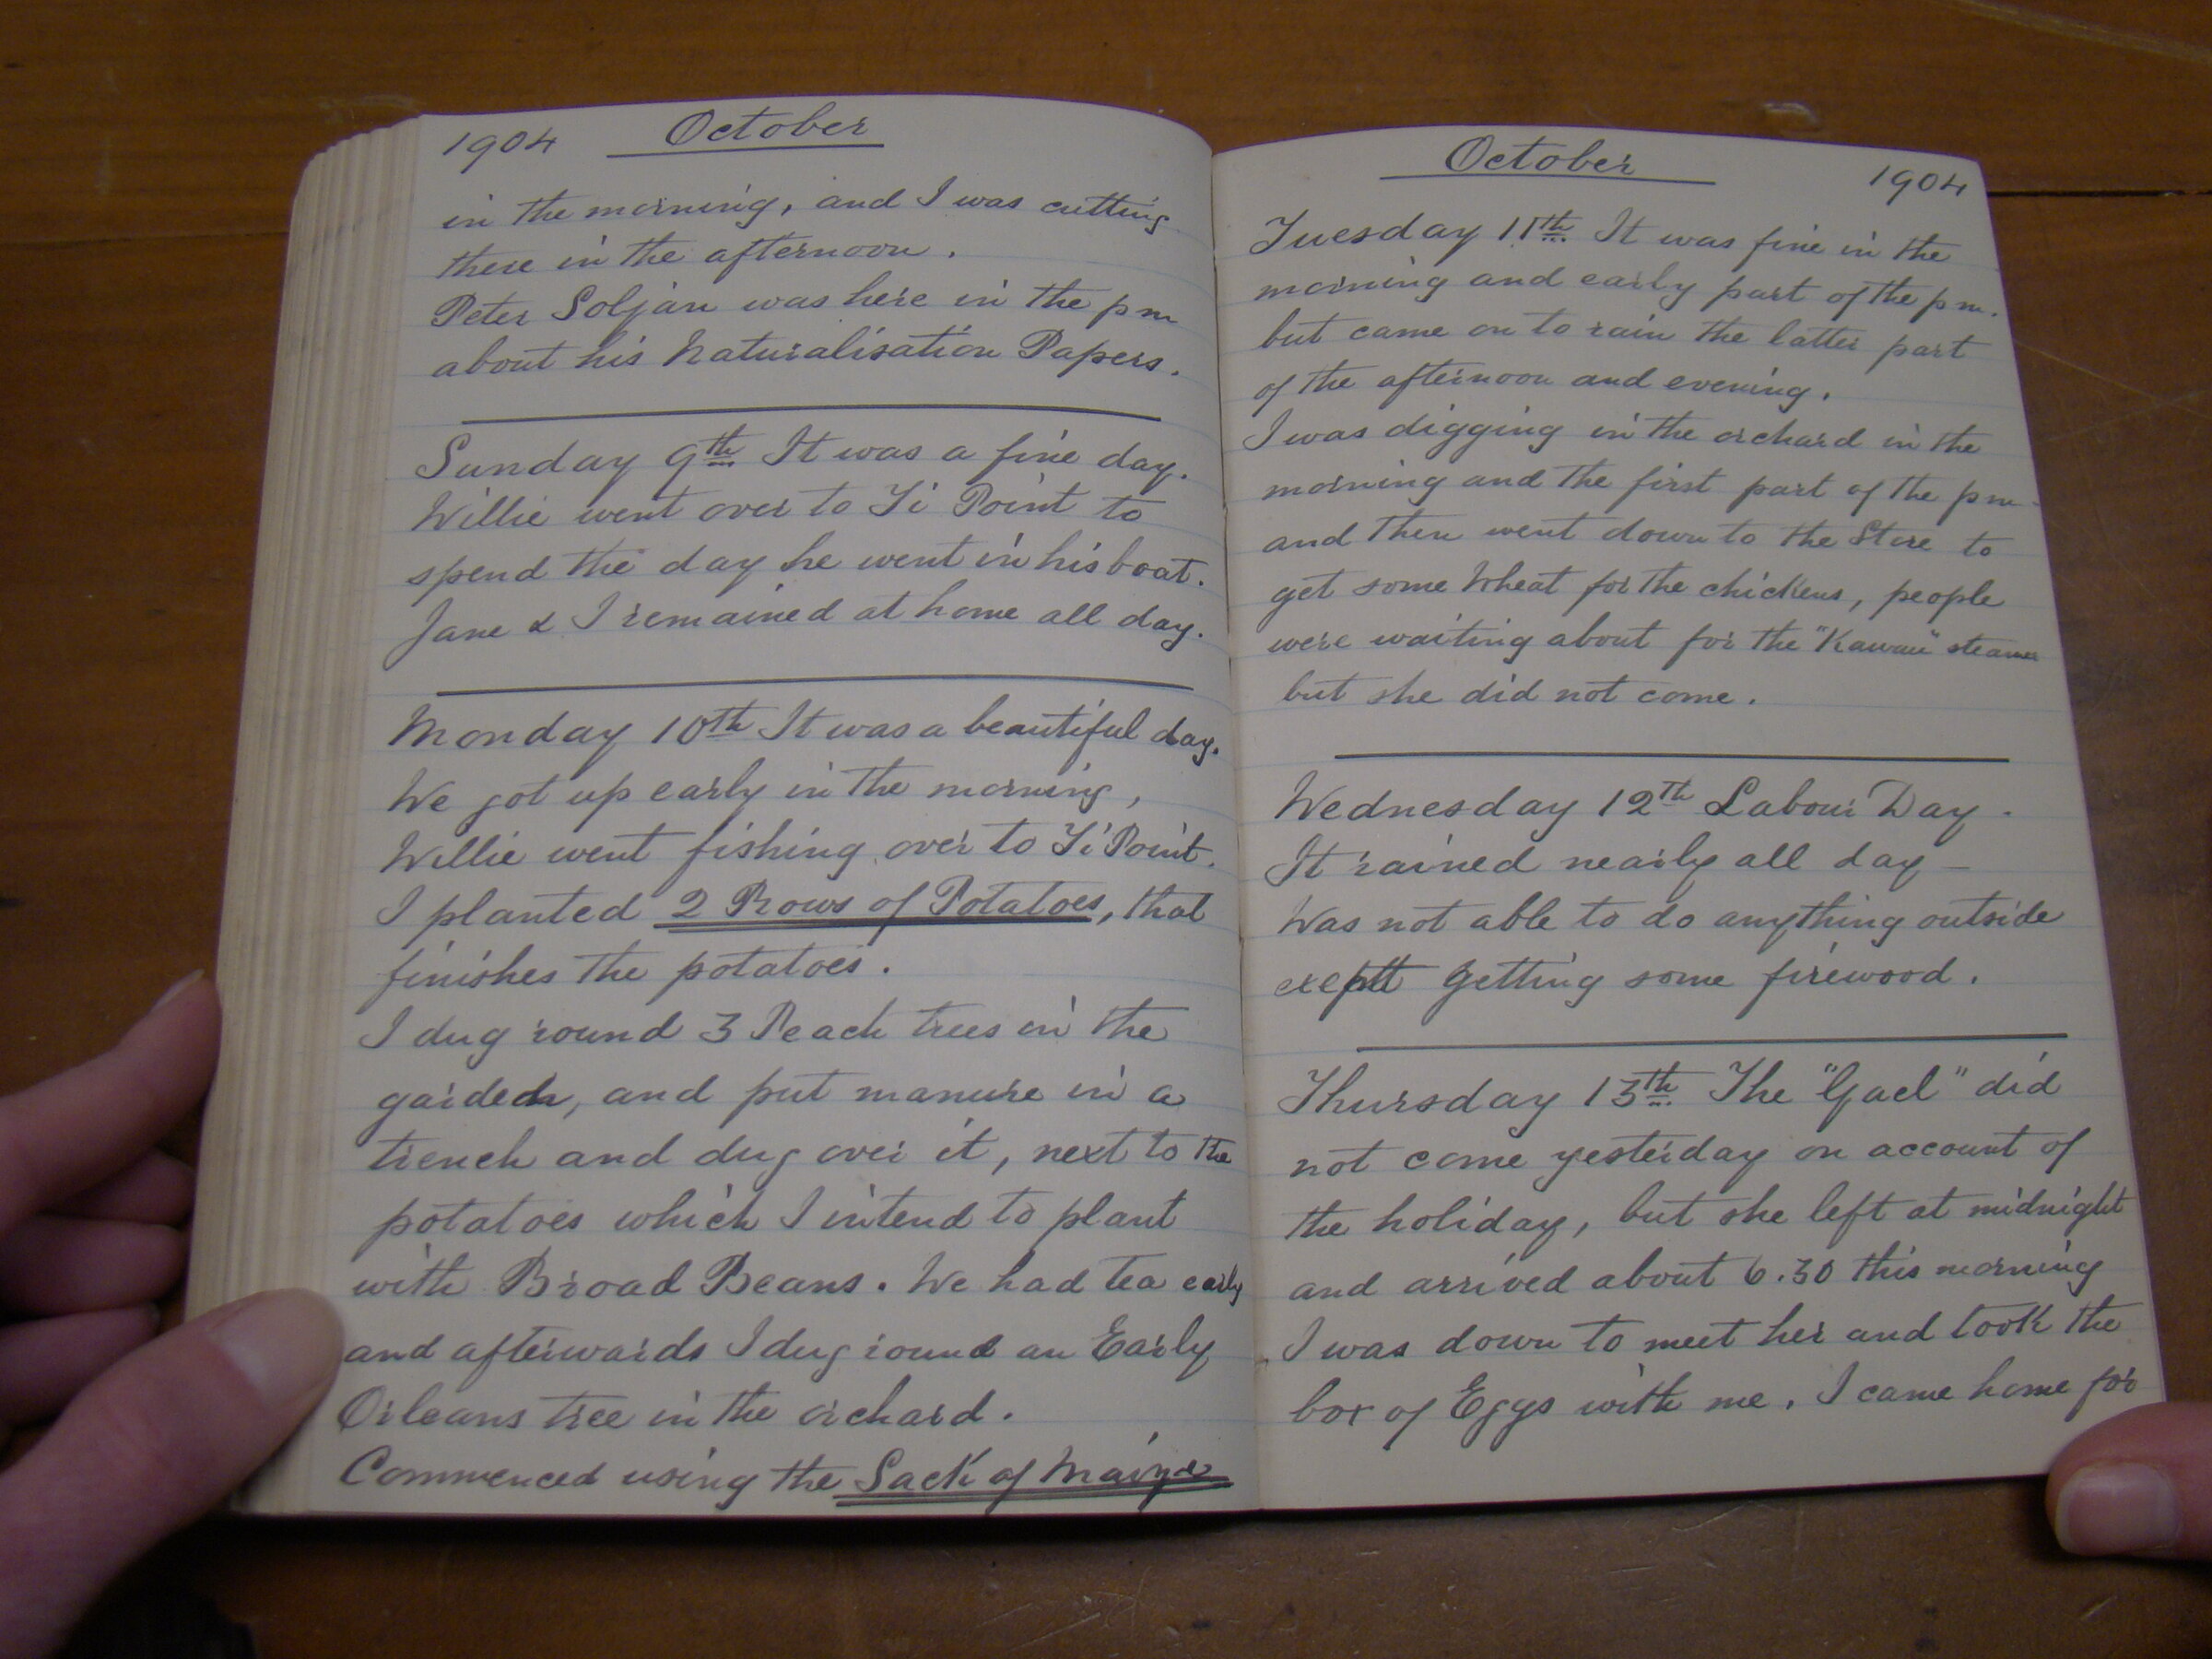 1904 October
in the morning, and I was cutting
there in the afternoon.
Peter Soljan was here in the pm
about his Naturalisation Papers.
Sunday 9th It was a fine day.
Willie went over to Ti Point to
spend the day he went in his boat.
Jane & I remained at home all day.
Monday 10th It was a beautiful day.
We got up early in the morning,
Willie went fishing over to Ti Point.
I planted 2 Rows of Potatoes, that
finishes the potatoes.
I dug round 3 Peach trees in the
garden, and put manure in a
trench and dug over it, next to the
potatoes which I intend to plant
with Broad Beans. We had tea early
and afterwards I dug round an Early
Orleans tree in the orchard.
Commenced using the Sack of Maize
October 1904
Tuesday 11th It was fine in the
morning and early part of the pm.
but came on to rain the latter part
of the afternoon and evening.
I was digging in the orchard in the
morning and the first part of the pm
and then went down to the Store to
get some Wheat for the chickens, people
were waiting about for the "Kawau" steamer
but she did not come.
Wednesday 12th Labour Day.
It rained nearly all day –
Was not able to do anything outside
exeptt getting some firewood.
Thursday 13th The "Gael" did
not come yesterday on account of
the holiday, but she left at midnight
and arrived about 6.30 this morning
I was down to meet her and took the
box of Eggs with me. I came home for